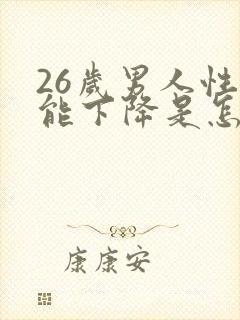 26岁男人性
能下降是怎
康康安